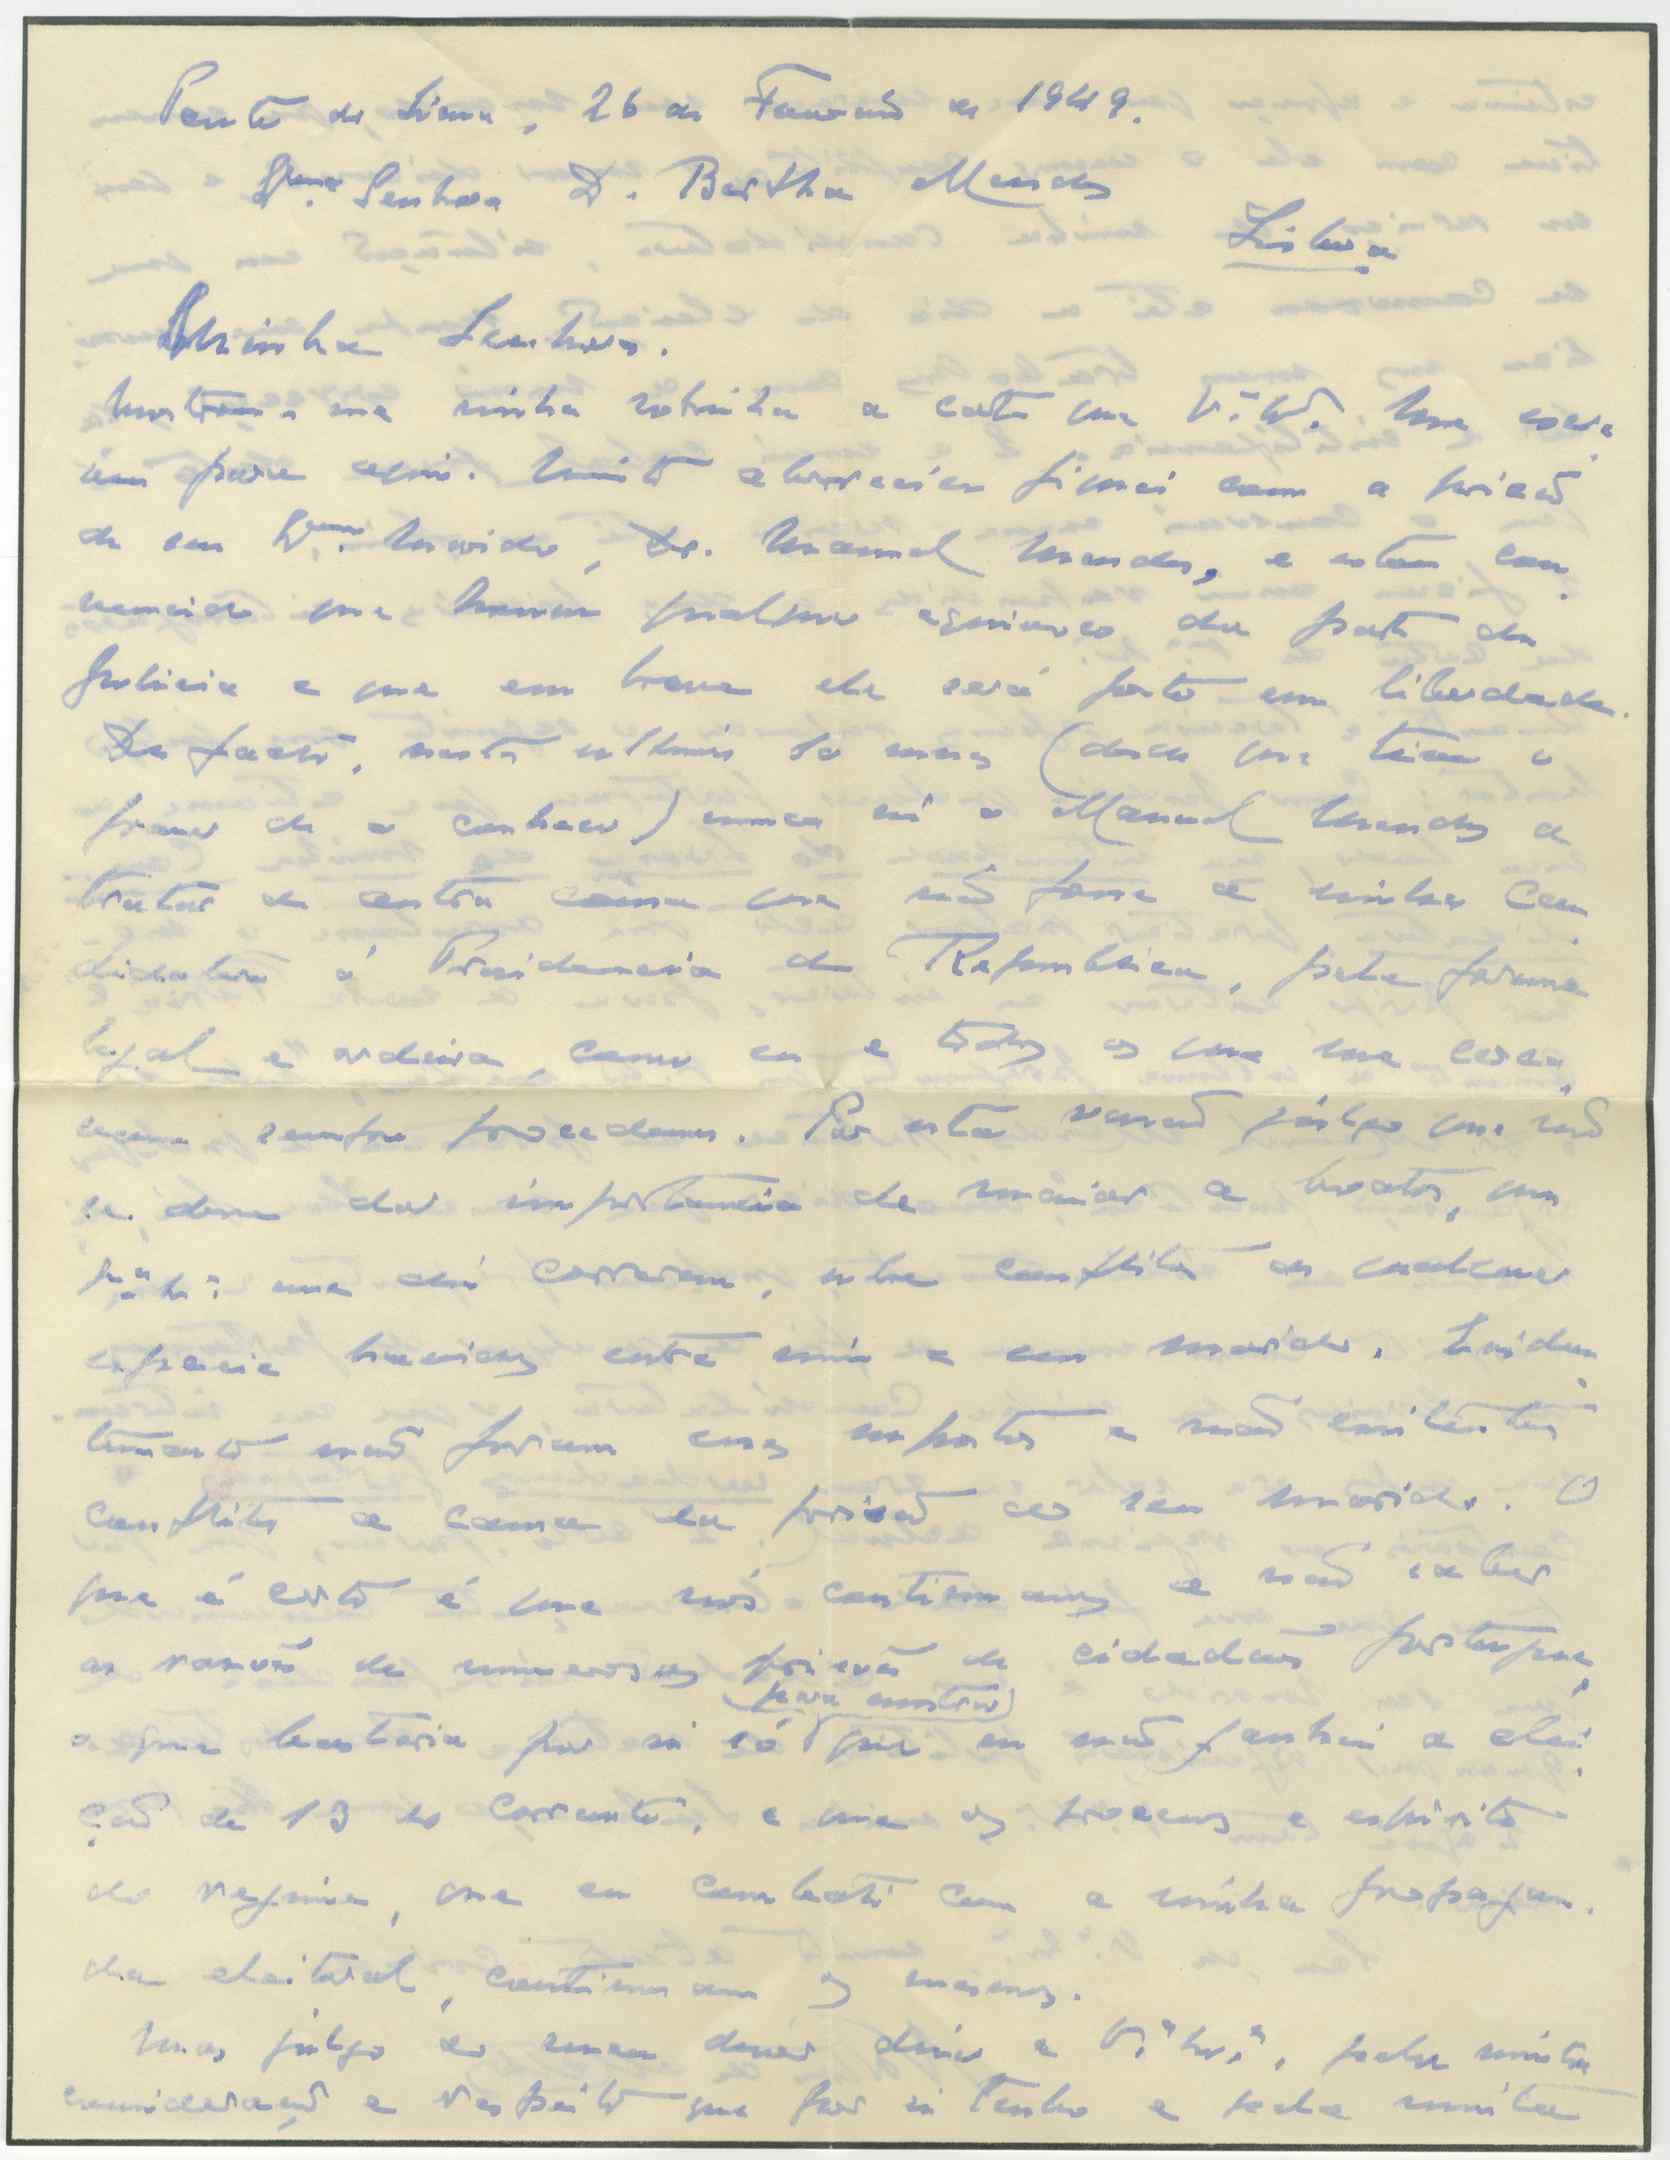 Ponte de Lima, 26 de Fevereiro de 1949.
Exma Senhora D. Bertha Mendes
Lisboa
Minha Senhora.
Mostrou-me minha sobrinha a carta que V.ª Ex.ª lhe escre-
veu para aqui. Muito aborrecido fiquei com a prisão
de seu Exmo. Marido, Dr. Manuel Mendes, e estou con-
vencido que houve qualquer equivoco da parte da
policia e que em breve ele será posto em liberdade.
De facto, nestes ultimos 10 meses (desde que tive o
prazer de o conhecer) nunca vi o Manuel Mendes a
tratar de outra coisa que não fosse a minha Can-
didatura á Presidencia da Republica, pela forma
legal e ordeira, como eu e todos os que me cerca-
vam sempre procedemos. Por esta razão julgo que não
se deve dar importancia de maior a boatos, que
V.ª Ex.ª diz que correram, sobre conflitos de qualquer
especie havidos entre mim e seu marido. Eviden-
temente não foram esses supostos e não existentes
conflitos a causa da prisão do seu marido. O
que é certo é que nós continuamos a não saber
as razões de numerosas prisões de cidadãos portugueses,
o que bastaria por si só (para mostrar) que eu não ganhei a elei-
ção de 13 do corrente, e que os processos e espirito
do regimen, que eu combati com a minha propagan-
da eleitoral, continuam os mesmos.
Mas julgo do meu dever dizer a V.ª Ex.ª, pela muita
consideração e respeito que por si tenho e pela muita